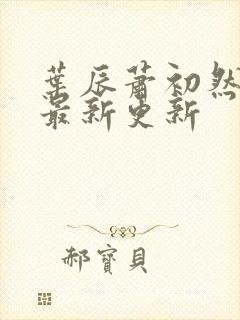 葉辰蕭初然
最新更新
郝寶貝